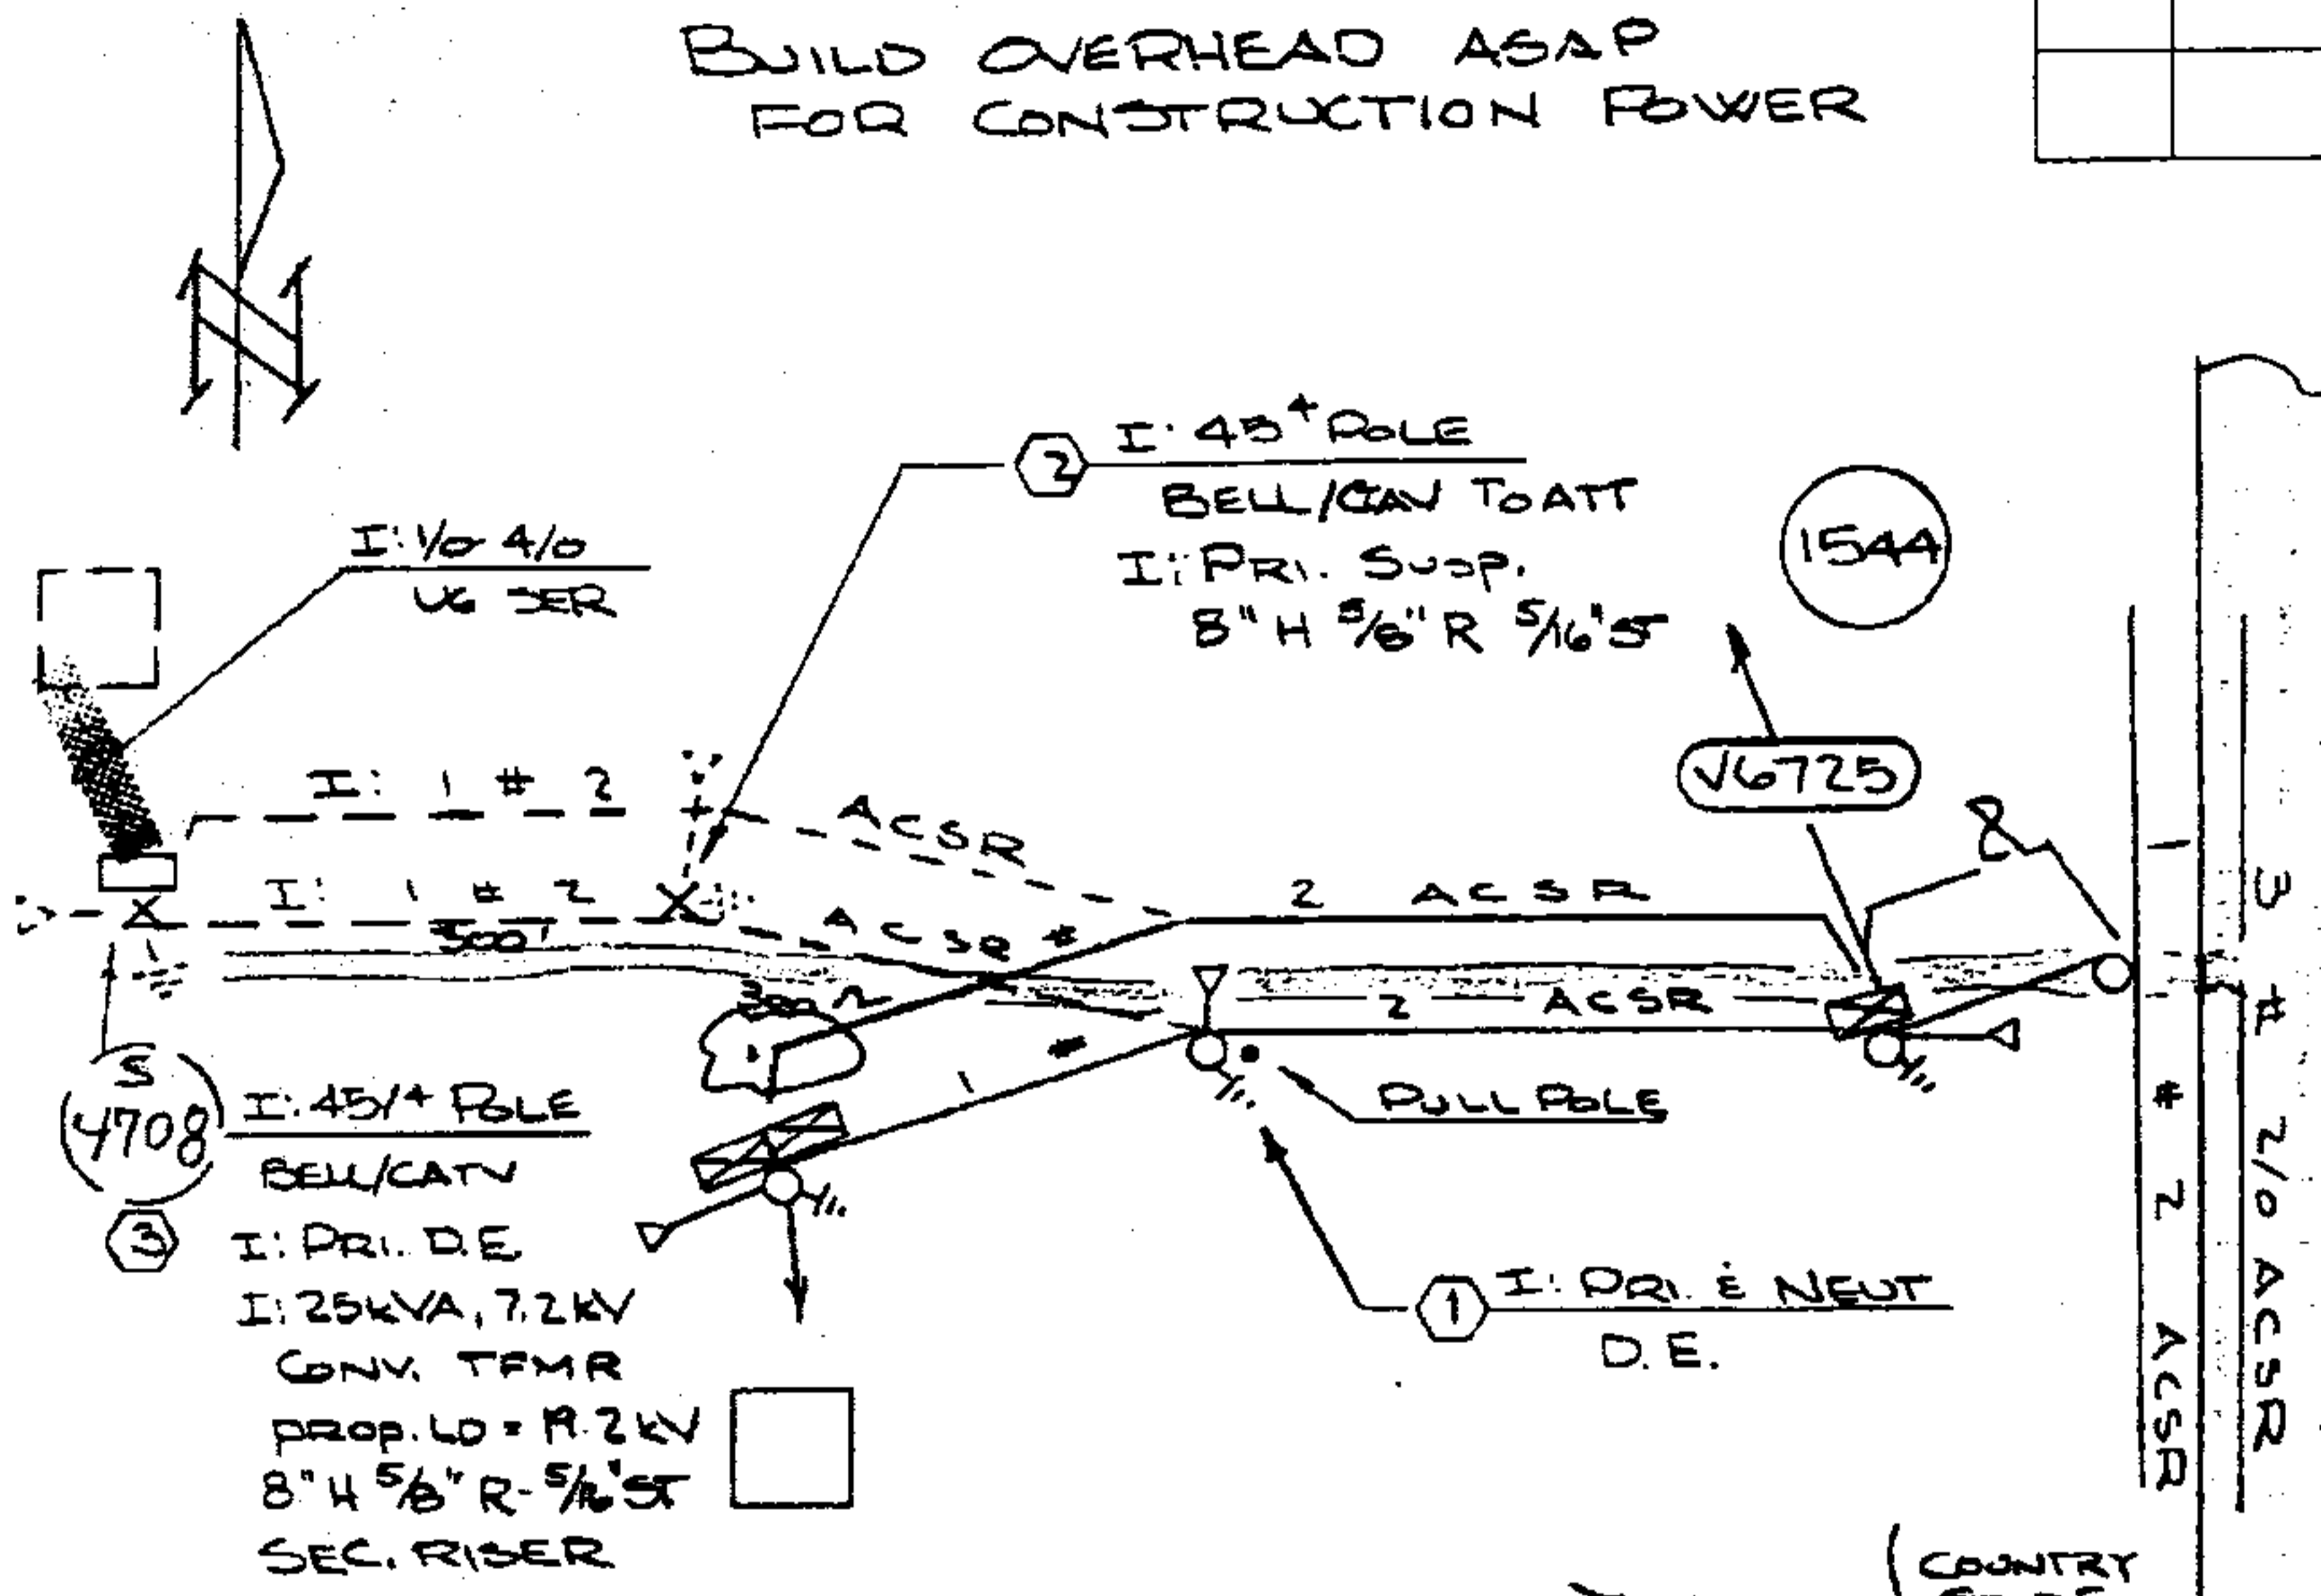 BUILD OVERHEAD ASAP
FOR CONSTRUCTION POWER
N
2 I: 45/4 POLE
BELL/CATV TO ATT
I: PRI. SUSP.
8" H 5/8" R 5/16" ST
1544
I: 1/0 4/0
UG SER
V6725
I: 1 # 2 ACSR
2 ACSR
I: 1 # 2 ACSR #
500'
300'
2 ACSR
1
PULL POLE
S
4708
I: 45/4 POLE
BELL/CATV
3
I: PRI. D.E.
I: 25kVA, 7.2kV
CONV. TFMR
PROP. LD = 19.2 kV
8" H 5/8" R - 5/16" ST
SEC. RISER
1 I: PRI. & NEUT
D.E.
1 # 2 ACSR
3 # 2/0 ACSR
COUNTRY